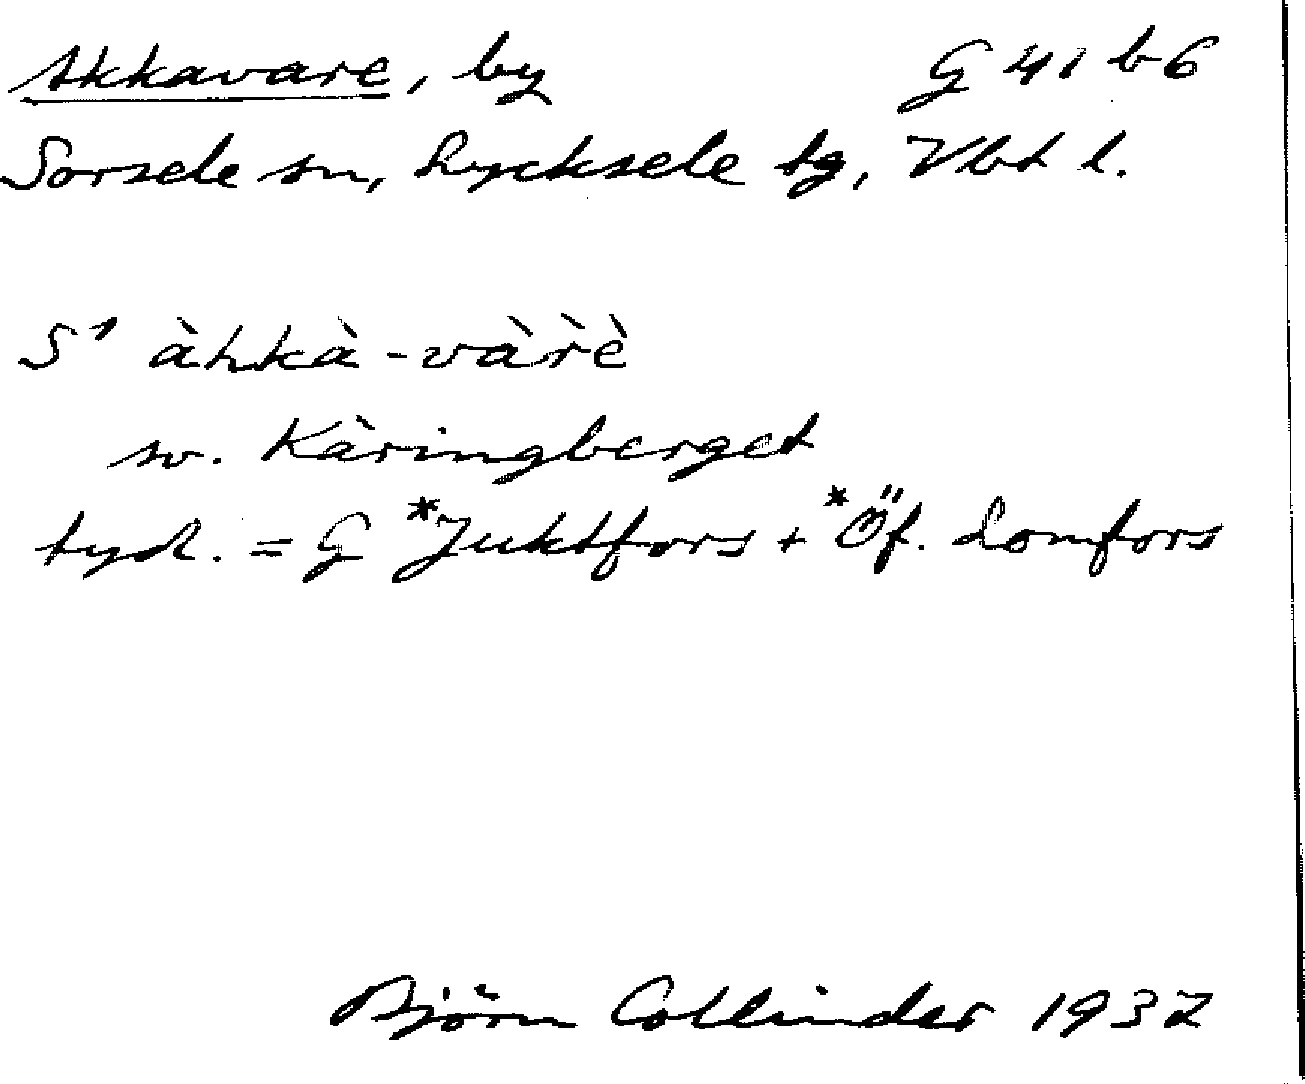 Akkavare, by G 41 b 6
Sorsele sn, Lycksele tg, Vbt l.
S' àhkà-vàr̀è
sv. Käringberget
tyd. = G *Juktfors + *Öf. Lomfors
Björn Collinder 1932